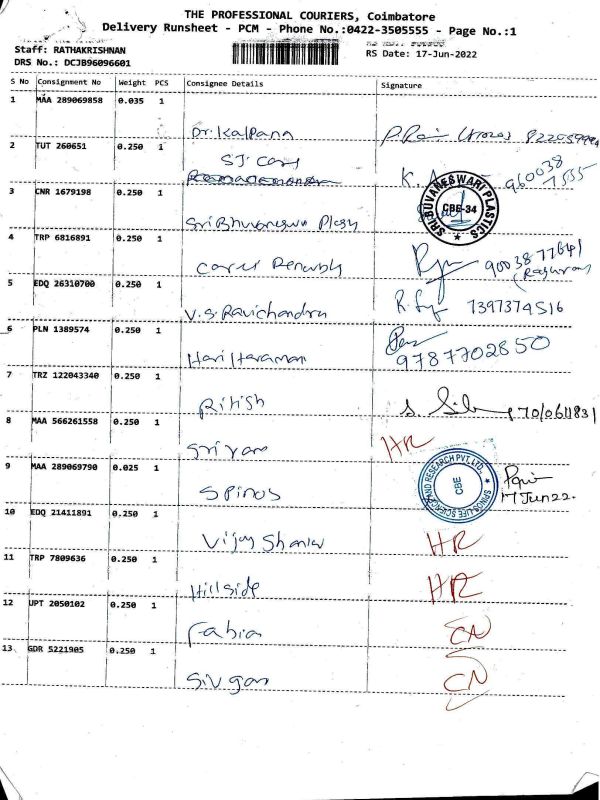 THE PROFESSIONAL COURIERS, Coimbatore
Delivery Runsheet - PCM - Phone No.:0422-3505555 - Page No.:1
Staff: RATHAKRISHNAN
DRS No.: DCJB96096601
RS Date: 17-Jun-2022
S No Consignment No Weight PCS Consignee Details Signature
1 MAA 289069858 0.035 1
Dr. Kalpana
2 TUT 260651 0.250 1
K. A 960038
7535
3 CNR 1679198 0.250 1
SRI BUVANESWARI PLASTICS
CBE-34
4 TRP 6816891 0.250 1
5 EDQ 26310700 0.250 1
V.S. Ravichandra R. 7397374516
6 PLN 1389574 0.250 1
Hari Haraman 9787702850
7 TRZ 122043340 0.250 1
Ritish S.
8 MAA 566261558 0.250 1
Sriram HR
9 MAA 289069790 0.025 1
Spinos
SPINOS LIFE SCIENCE AND RESEARCH PVT. LTD.
CBE
17 Jun 22.
10 EDQ 21411891 0.250 1
Vijay HR
11 TRP 7809636 0.250 1
Hillside HR
12 UPT 2050102 0.250 1
Fabia CN
13 GDR 5221905 0.250 1
Sivgan CN